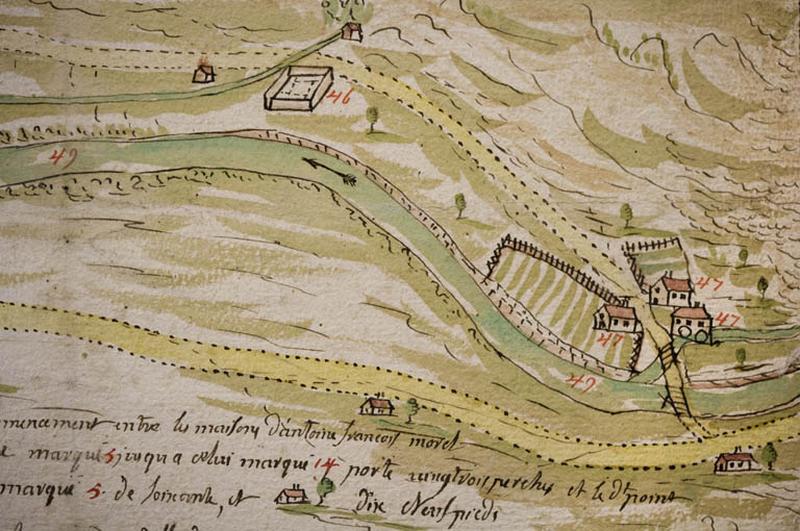 46
49
47
47
47
49
mencement entre les maisons d'antoine francois morel
marqué 5 jusqu a celui marqué 14 porte vingt trois perches et le d.t point
marqué 5. de soixante, et dix et neuf pieds